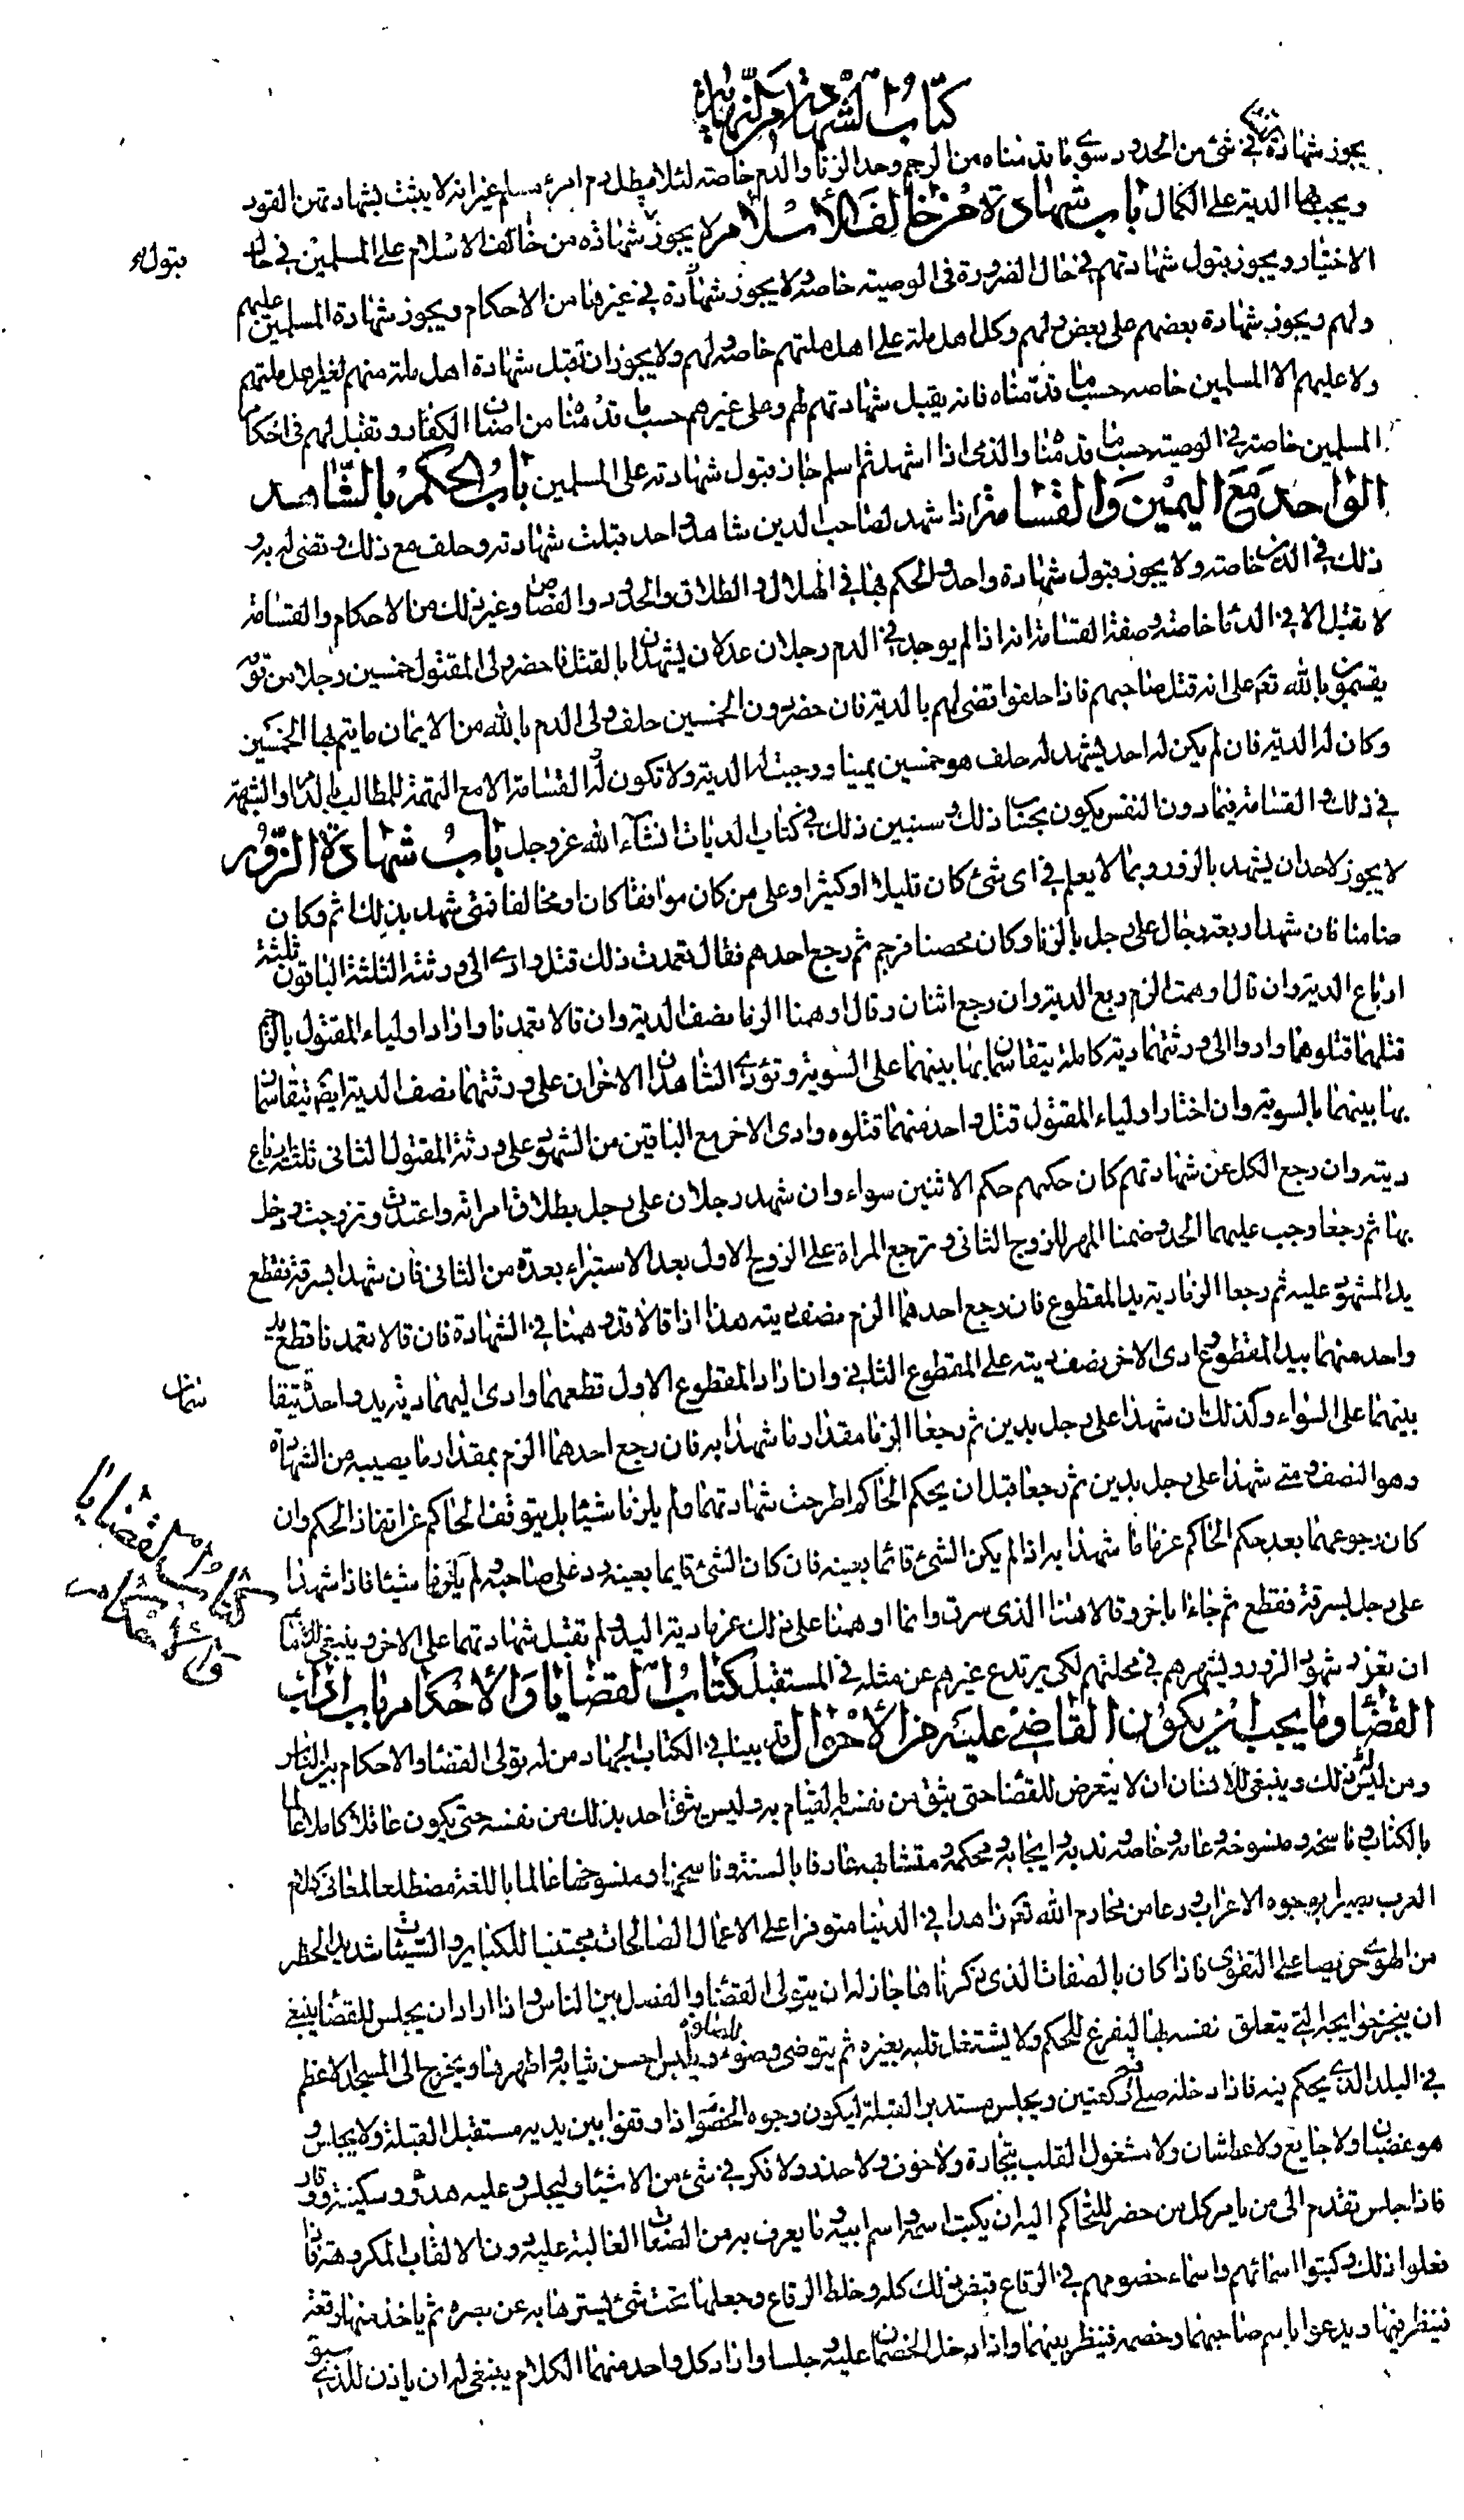 كتاب الشهادات من النهاية
يجوز شهادتهن في شئ من الحدود سوى ما قدمناه من الرجم وحد الزنا والدم خاصة لئلا يبطل دم امرئ مسلم غير انه لا يثبت بشهادتهن القود
ويجب بها الدية على الكمال باب شهادة من خالف الاسلام لا يجوز شهادة من خالف الاسلام على المسلمين في حال
الاختيار ويجوز قبول شهادتهم في حال الضرورة في الوصية خاصة ولا يجوز شهادة في غيرها من الاحكام ويجوز شهادة المسلمين عليهم
ولهم ويجوز شهادة بعضهم على بعض ولهم وكل اهل ملة على اهل ملتهم خاصة ولهم ولا يجوز ان تقبل شهادة اهل ملة منهم لغير اهل ملتهم
ولا عليهم الا المسلمين خاصة حسب ما قدمناه فانه يقبل شهادتهم لهم وعلى غيرهم حسب ما قدمنا من اصناف الكفار وتقبل لهم في احكام
المسلمين خاصة في الوصية حسب ما قدمنا والذمى اذا اشهد ثم اسلم جاز قبول شهادته على المسلمين باب الحكم بالشاهد
الواحد مع اليمين والقسامة اذا شهد لصاحب الدين شاهد واحد قبلت شهادته وحلف مع ذلك وقضى له به و
ذلك في الدين خاصة ولا يجوز قبول شهادة واحد والحكم بها في الهلال والطلاق والحدود والقصاص وغير ذلك من الاحكام والقسامة
لا تقبل الا في الدماء خاصة وصفة القسامة انه اذا لم يوجد في الدم رجلان عدلان يشهدان بالقتل فاحضر ولى المقتول خمسين رجلا من قومه
يقسمون بالله تعم على انه قتل صاحبهم فاذا حلفوا قضى لهم بالدية فان حضر دون الخمسين حلف ولى الدم بالله من الايمان ما يتم بها الخمسين
وكان له الدية فان لم يكن له احد يشهد له حلف هو خمسين يمينا ووجبت له الدية ولا تكون القسامة الا مع التهمة للمطالب بالدم والشبهة
في ذلك والقسامة فيما دون النفس يكون بحساب ذلك وسنبين ذلك في كتاب الديات انشاء الله عز وجل باب شهادة الزور
لا يجوز لاحد ان يشهد بالزور وبما لا يعلم في اى شئ كان قليلا او كثيرا وعلى من كان موافقا كان او مخالفا فمتى شهد بذلك اثم وكان
ضامنا فان شهد اربعة رجال على رجل بالزنا وكان محصنا فرجم ثم رجع احدهم فقال تعمدت ذلك قتل وادى الى ورثته الثلثة الباقون ثلثة
ارباع الدية وان قال اوهمت الزم ربع الدية وان رجع اثنان وقالا اوهمنا الزما نصف الدية وان قالا تعمدنا واراد اولياء المقتول بالزنا
قتلهما قتلوهما وادوا الى ورثتهما دية كاملة يتقاسمان بها بينهما على السوية وتؤدى الشاهدان الاخران على ورثتهما نصف الدية ايضا يتقاسمان
بها بينهما بالسوية وان اختار اولياء المقتول قتل واحد منهما قتلوه وادى الاخر مع الباقين من الشهود على ورثة المقتول الثانى ثلثة ارباع
ديته وان رجع الكل عن شهادتهم كان حكمهم حكم الاثنين سواء وان شهد رجلان على رجل بطلاق امراته واعتدت وتزوجت ودخل
بها ثم رجعا وجب عليهما الحد وضمنا المهر للزوج الثانى وترجع المراة على الزوج الاول بعد الاستبراء بعدة من الثانى فان شهدا بسرقة فقطع
يد المشهود عليه ثم رجعا الزما دية يد المقطوع فان رجع احدهما الزم نصف ديته هذا اذا قالا قد وهمنا في الشهادة فان قالا تعمدنا قطع يد
واحد منهما بيد المقطوع وادى الاخر نصف ديته على المقطوع الثانى وان اراد المقطوع الاول قطعهما وادى اليهما دية يد واحدة يتقا سمان
بينهما على السواء وكذلك ان شهدا على رجل بدين ثم رجعا الزما مقدار ما شهدا به فان رجع احدهما الزم بمقدار ما يصيبه من الشهادة
وهو النصف ومتى شهدا على رجل بدين ثم رجعا قبل ان يحكم الحاكم اطرحت شهادتهما ولم يلزما شيئا بل يتوقف الحاكم عن انفاذ الحكم وان
كان رجوعهما بعد حكم الحاكم غرما ما شهدا به اذا لم يكن الشئ قائما بعينه فان كان الشئ قايما بعينه رد على صاحبه ولم يلزما شيئا فاذا شهدا
على رجل بسرقة فقطع ثم جاءا باخر وقالا هذا الذى سرق وانما اوهمنا على ذلك غرما دية اليد ولم تقبل شهادتهما على الاخر وينبغي للامام
ان يعزر شهود الزور ويشهرهم في محلتهم لكى يرتدع غيرهم عن مثله في المستقبل كتاب القضايا والاحكام باب اداب
القضاء وما يجب ان يكون القاضي عليه من الاحوال قد بينا في الكتاب الجهاد من له تولى القضاء والاحكام بين الناس
ومن ليس له ذلك وينبغي للانسان ان لا يتعرض للقضاء حتى يثق من نفسه بالقيام به وليس يثق احد بذلك من نفسه حتى يكون عاقلا كاملا عالما
بالكتاب وناسخه ومنسوخه وعامه وخاصه وندبه وايجابه ومحكمه ومتشابهه عارفا بالسنة وناسخها ومنسوخها عالما باللغة مضطلعا لمعانى كلام
العرب بصيرا بوجوه الاعراب ورعا من محارم الله تعم زاهدا في الدنيا متوفرا على الاعمال الصالحات مجتنبا للكباير والسيئات شديد الحظر
من الهوى حريصا على التقوى فاذا كان بالصفات الذى ذكرناها جاز له ان يتولى القضاء والفصل بين الناس واذا اراد ان يجلس للقضاء ينبغي
ان ينجز حوايجه التى يتعلق نفسه بها ليفرغ للحكم ولا يشتغل قلبه بغيره ثم يتوضى وضوء للصلوة ويلبس احسن ثيابه واطهرها ويخرج الى المسجد الاعظم
في البلد الذى يحكم فيه فاذا دخله صلى فيه ركعتين ويجلس مستدبر القبلة ليكون وجوه الخصوم اذا وقفوا بين يديه مستقبل القبلة ولا يجلس و
هو غضبان ولا جايع ولا عطشان ولا مشغول القلب بتجارة ولا خوف ولا حزن ولا فكر في شئ من الاشياء وليجلس وعليه هدؤ وسكينة ووقار
فاذا جلس تقدم الى من يامر كل من حضر للتحاكم اليه ان يكتب اسمه واسم ابيه وما يعرف به من الصفات الغالبة عليه دون الالقاب المكروهة فاذا
فعلوا ذلك وكتبوا اسمائهم واسماء خصومهم في الرقاع قبض ذلك كله وخلط الرقاع وجعلها تحت شئ يسترها به عن بصره ثم ياخذ منها رقعة
فينظر فيها ويدعوا باسم صاحبهما وخصمه فينظر بينهما واذا دخل الخصمان عليه وجلسا واراد كل واحد منهما الكلام ينبغي له ان ياذن للذى سبق